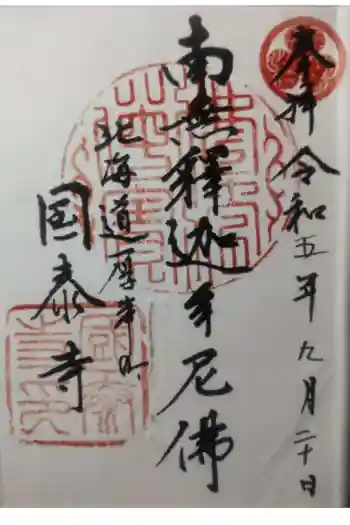 奉拝 令和五年九月二十日
南無釋迦牟尼佛
北海道厚岸町
国泰寺